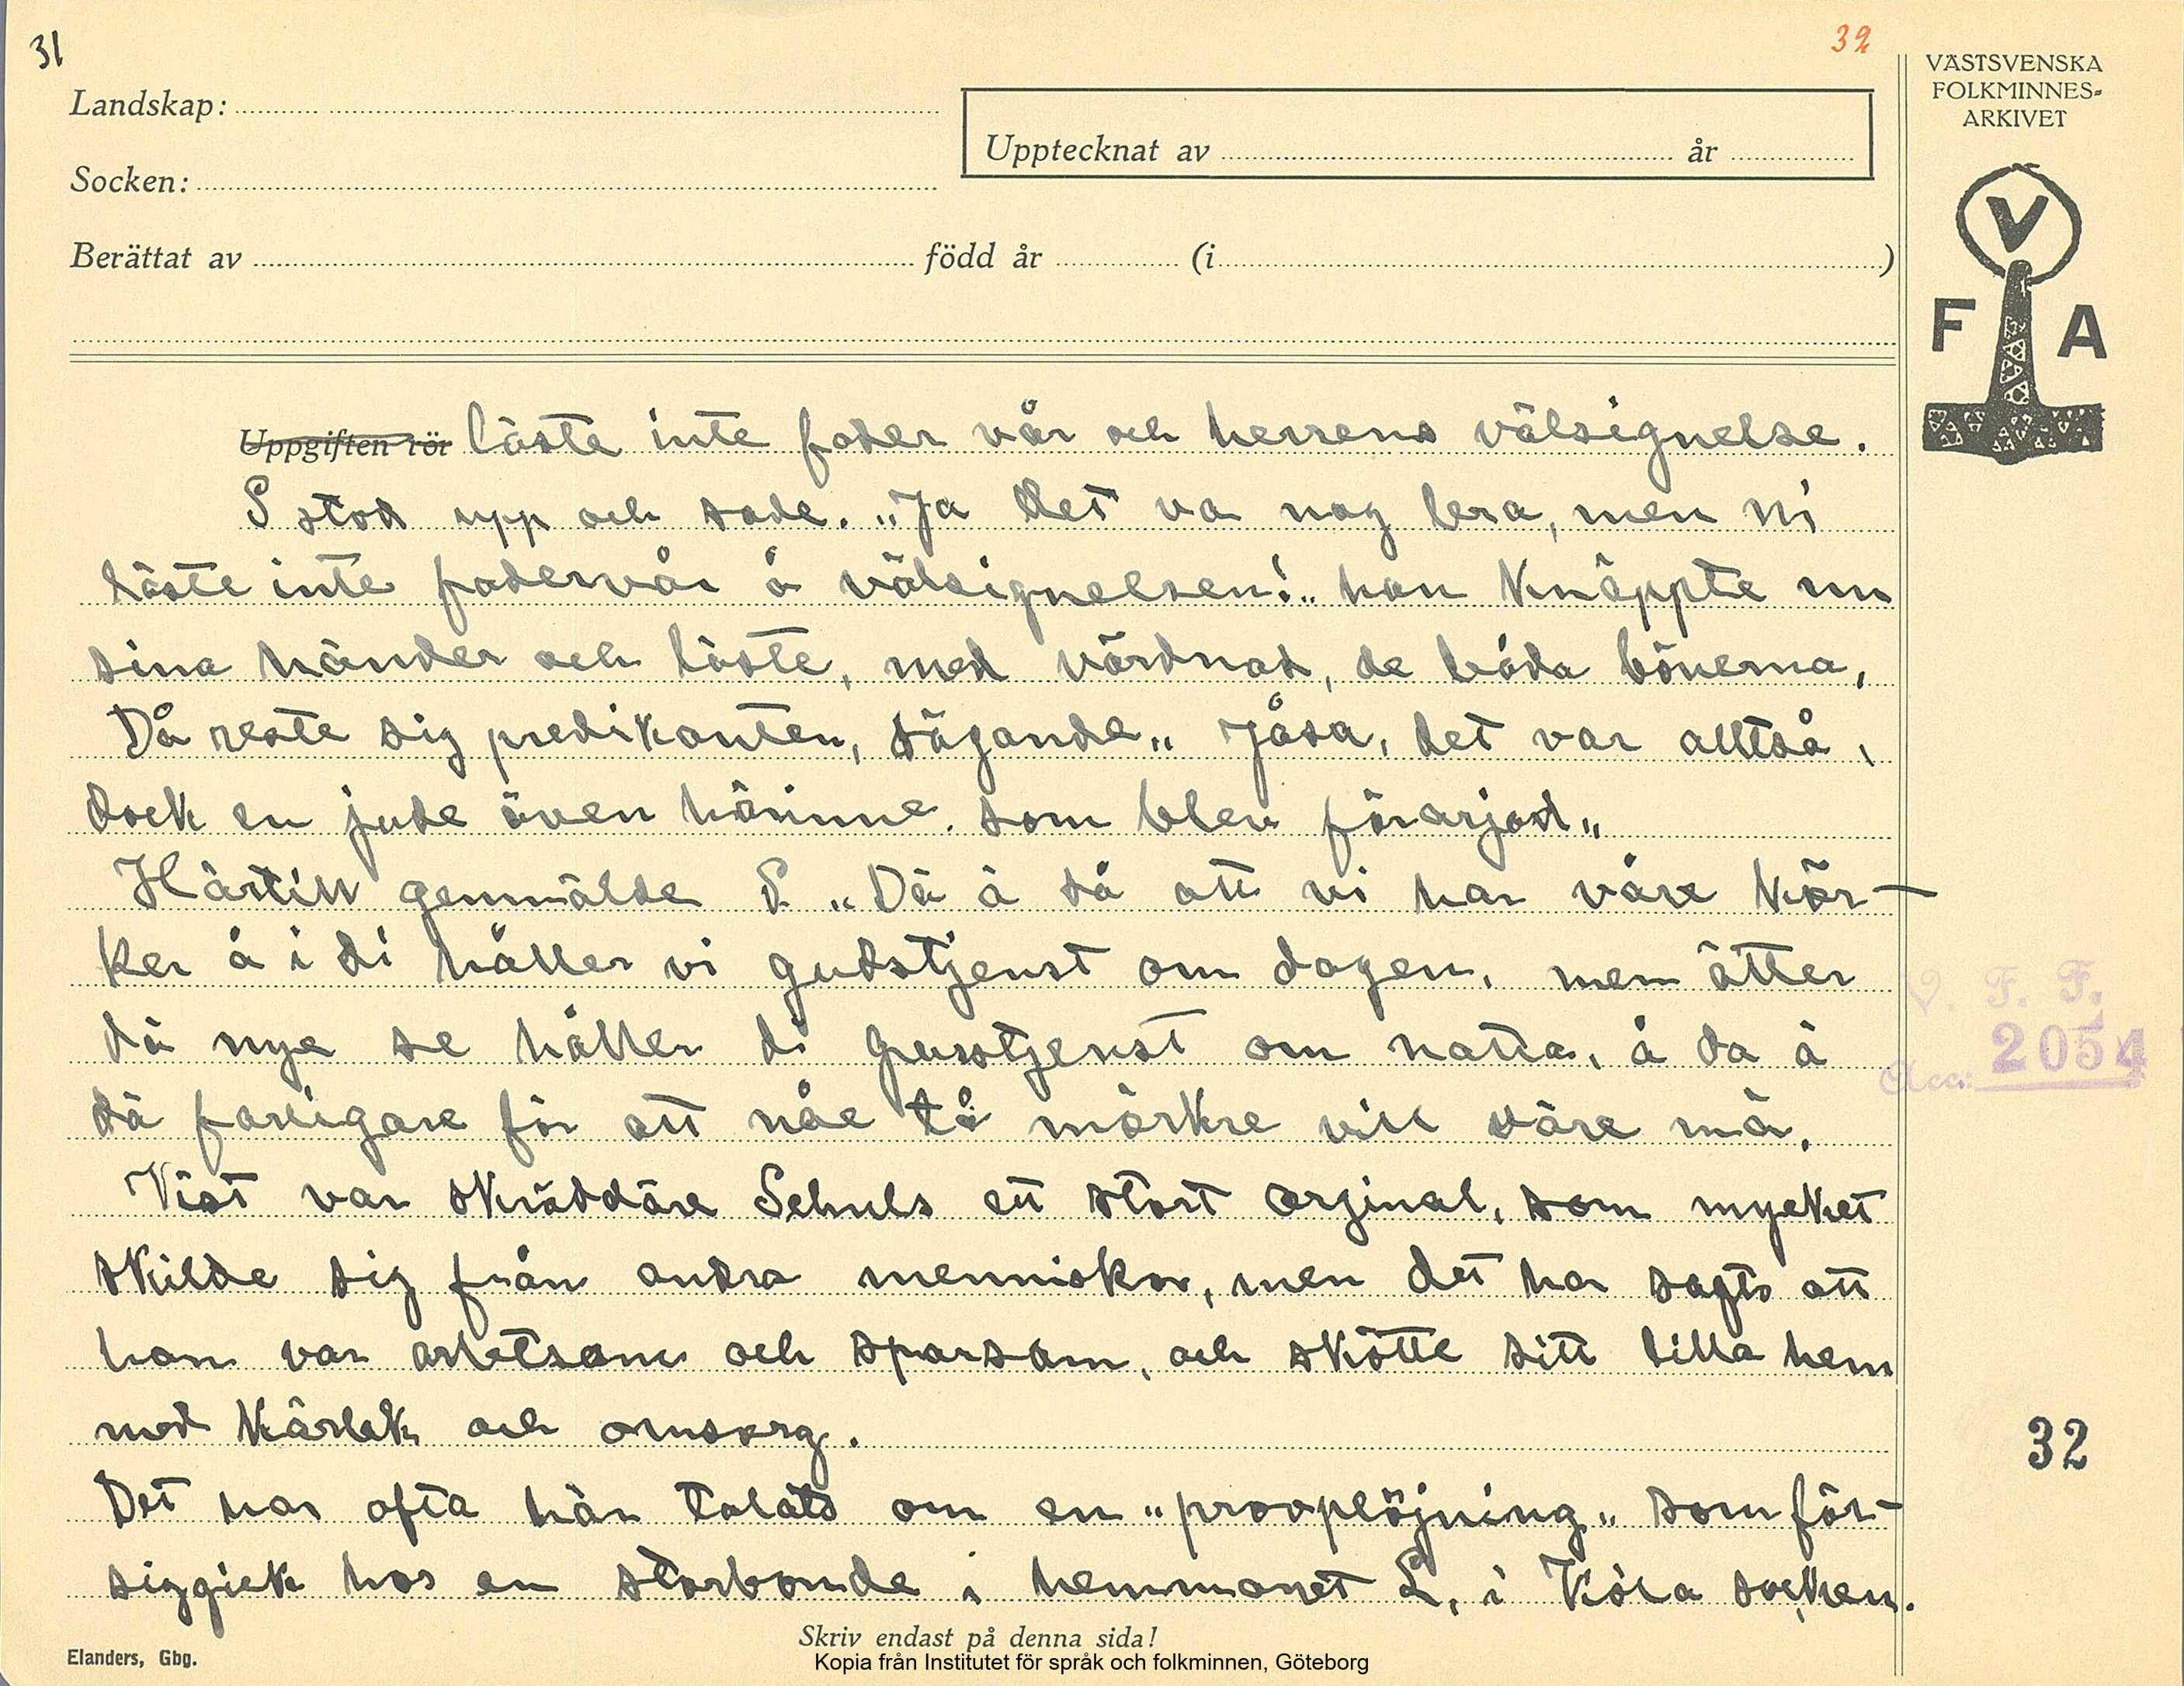 31
32
VÄSTSVENSKA
FOLKMINNES-
ARKIVET
Landskap:
Upptecknat av år
Socken:
Berättat av född år (i )
V
F A
Uppgiften rör läste inte fader vår och herrens välsignelse.
S stod upp och sade. „Ja det va nog bra, men ni
läste inte fadervår å välsignelsen!„ han knäppte nu
sina händer och läste, med vördnad, de båda bönerna,
Då reste sig predikanten, sägande„ Jåsa, det var alltså,
dock en jude även härinne. som blev förarjad„
Härtill genmälde S. „Dä ä så att vi har våre kör-
ker å i di håller vi gudstjenst om dagen, men ätter
dä nya se håller di gusstjenst om natta, å da ä
dä farligare för att nåe tå mörkre vill väre mä.
Vist var skräddare Schuls ett stort orginal, som mycket
skilde sig från andra menniskor, men det har sagts att
han var arbetsam och sparsam, och skötte sitt lilla hem
med kärlek och omsorg.
Det har ofta här talats om en „provplöjning„ som för-
siggick hos en storbonde i hemmanet L, i Köla socken.
V. F. F.
Acc: 2054
32
Skriv endast på denna sida!
Elanders, Gbg.
Kopia från Institutet för språk och folkminnen, Göteborg